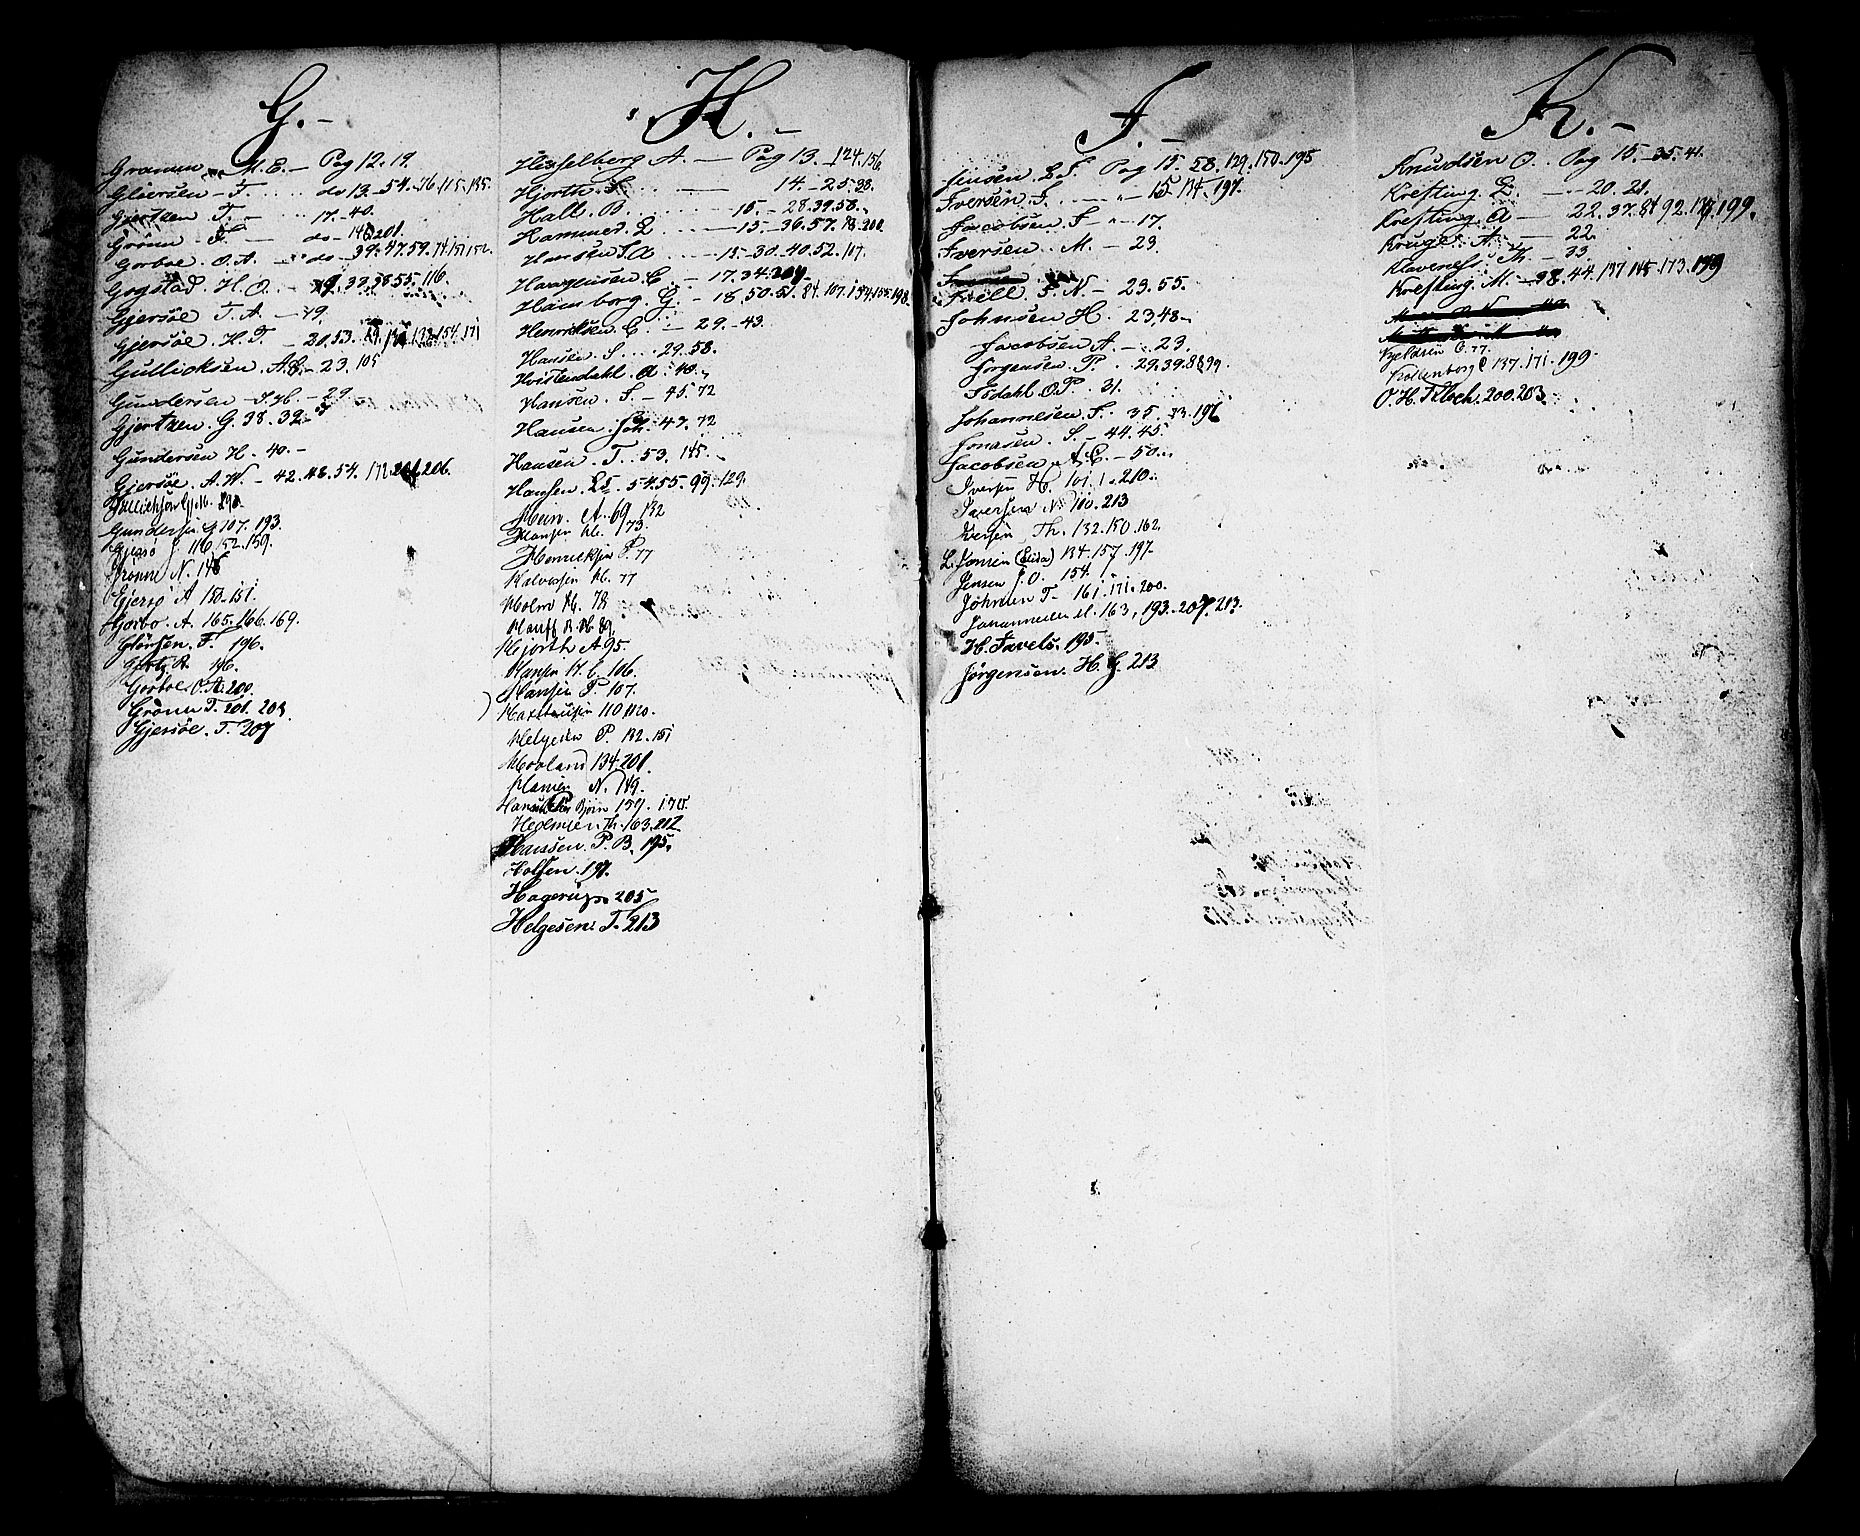 G.-
Gramm M. E. - Pag 12. 19.
Gliersen - T. do 13. - 54. - 76. 115. 135.
Gjertsen T. - 17. - 40.
Grönn T. - do - 201.
Gorboe. O. A. - do - 39. 47. 59. 74. 151.
Gogstad H. O. 39. 38. 55. 116.
Gjersöe T. A. - 19.
Gjersöe. H. T. - 154. 171
Gulliksen. A. - 23. 105
Gundersen - H. - 29.
Gjertsen. G. 38. 39.
Gundersen H. 40. -
Gjersöe. A. W. - 42. 48. 54. 172. 206.
Gundersen 107. 193.
Gjersö J. 116. 152. 159.
Grönne N. 146
Gjersö A 150. 151.
Gorbo. A. 165. 166. 169.
Gliersen. F. 196.
R. 196.
Gorboe. O. A. 200.
Grönn T. 201. 203.
Gjersöe. T. 207
H. -
Hesselberg A. - Pag 13. 124. 156
Hjorth. - 14. - 25. 38.
Hall. B. 15. - 28. 39. 58.
Hammer L - 15. - 36. 57. 78. 200.
Hansen T. A - 15. - 30. 40. 52. 107.
Haagensen. C - 17. 34. 207.
Hamborg. G. - 18. 50. 51. 84. 107. 154. 155. 198.
Henriksen. C. - 29. - 43.
Hansen. S. 29. 58.
Hvistendahl. A. 40.
Hansen. S. - 45. 72
Hansen. Joh. 47. 72
Hansen. T. 53. 145.
Hansen. 54. 55. 99. 129.
Hein. A. 69 132
Hansen H. 73.
Henriksen P. 77
Halvorsen H. 77
Holm H. 78
Hauff 89.
Hjorth A 95.
Hansen H. C. 106.
Hansen P 107.
110
Helgesen P. 132. 151
Hovland 134. 201.
Hansen N. 149.
Bjørn 159. 170.
Th. 163. 212
Hanssen. P. B. 195.
Holsen. 197.
Hagerup 205
Helgesen. T. 213
J -
Jensen L. T. Pag 15 58. 129. 150. 195
Iversen J. 15. 134. 197.
Jacobsen J - 17.
Iversen. M. - 23.
Juell. J. N. - 29. 55.
Johnsen H. 23, 48
Jacobsen A. - 23.
Jørgensen. P. 29. 39. 99
Isdahl O. P. 31.
Johannesen. J. 35. 73. 196
Jonasen. S. 44. 45.
Jacobsen A. C. - 50.
Iversen H. 101. 210.
Iversen N. 110. 213
Iversen Th. 132. 150. 162.
L. Jansen (Elida) 134. 157. 197.
Jensen J. O. 154.
Johnsen T - 161. 171. 200.
Johannesen 163, 193. 207. 213.
H. Javels. 195.
Jørgensen. H. G. 213
K. -
Knudsen O. Pag 15. - 35. 41.
Krefting. L. - 20. 21.
Krefting A - 22. 37. 84 92. 199.
Kruge. A. - 22.
Klaveness Th. - 33.
Krefting M. - 38. 44. 137. 145. 173. 199
Kjeldsen C. 77.
Kollenborg C 137. 171. 199.
O. H. Kloch. 200. 203.